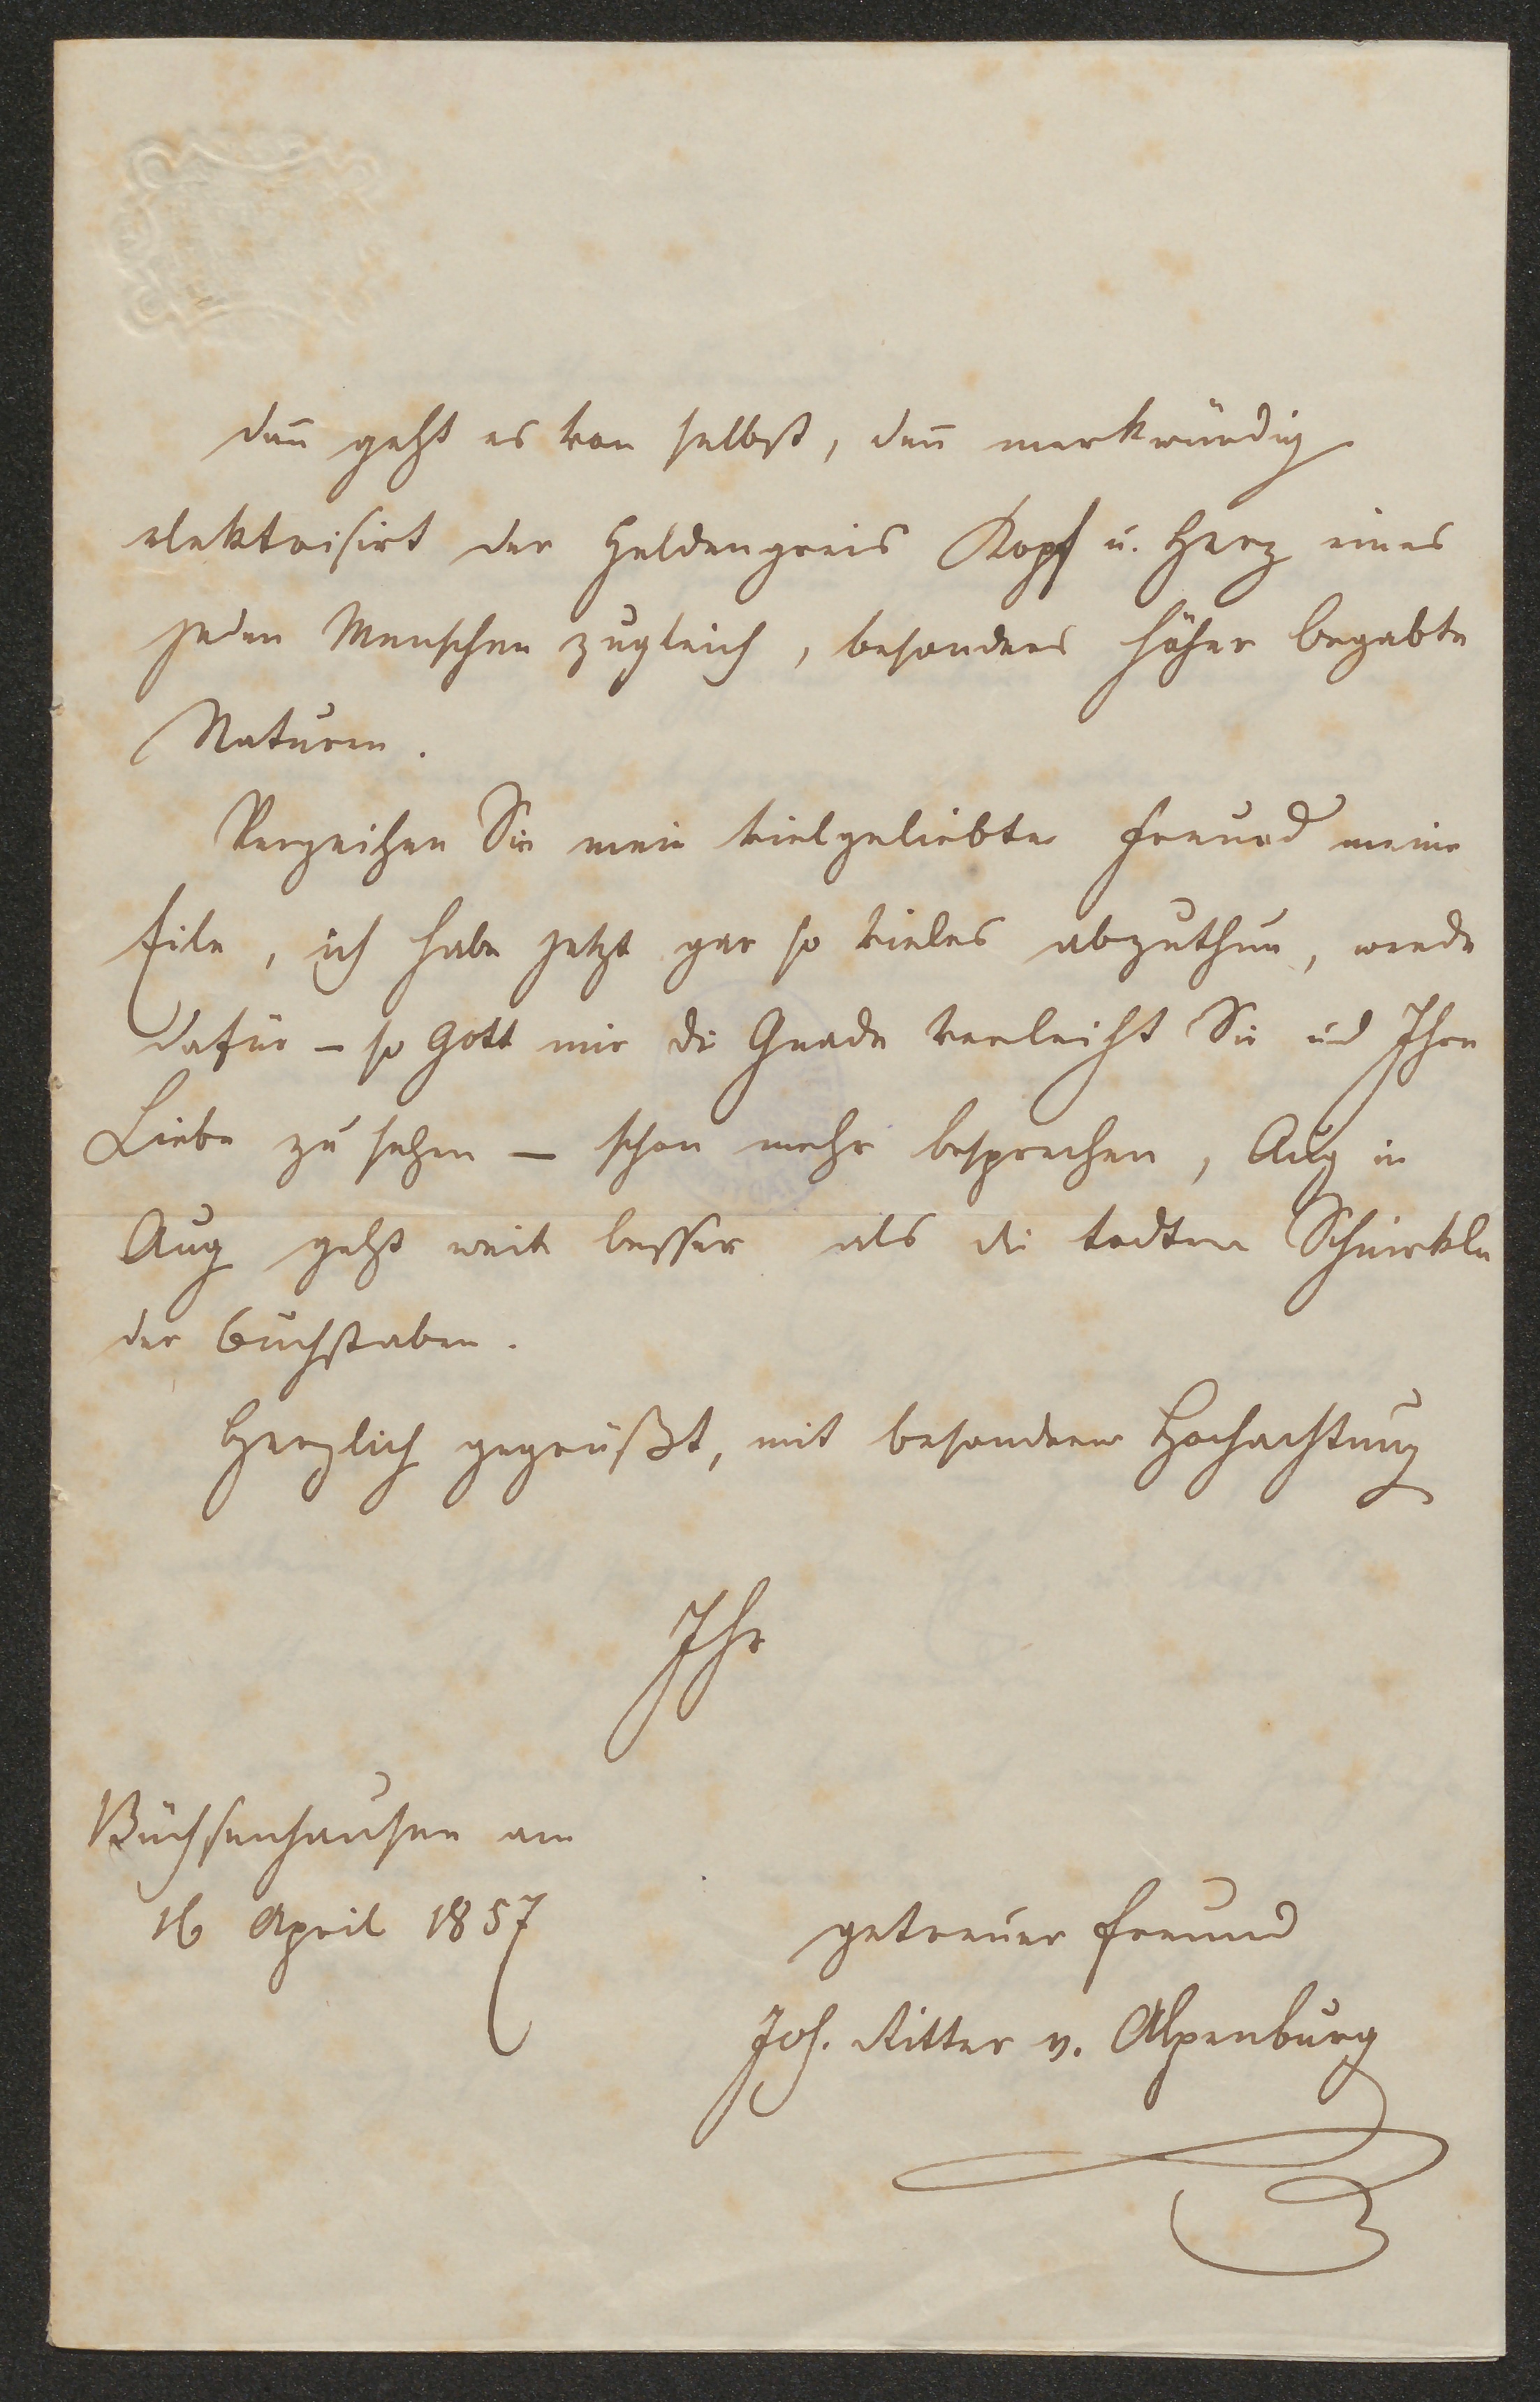 dan̄ geht es von selbst, den̄ merkwürdig
elektrisirt der Heldengreis Kopf u. Herz eines
jeden Menschen zugleich, besonders höher begabte
Naturen.
Verzeihen Sie mein vielgeliebter Freund meine
Eile, ich habe jetzt gar so vieles abzuthun, werde
dafür – so Gott mir die Gnade verleiht Sie und Ihre
Liebe zu sehen – schon mehr besprechen, Aug in
Aug geht weit besser als die todten Schnirkeln
der Buchstaben.
Herzlich gegrüßt, mit besonderer Hochachtung
Ihr
Büchsenhausen am
16 April 1857
getreuer Freund
Joh. Ritter v. Alpenburg